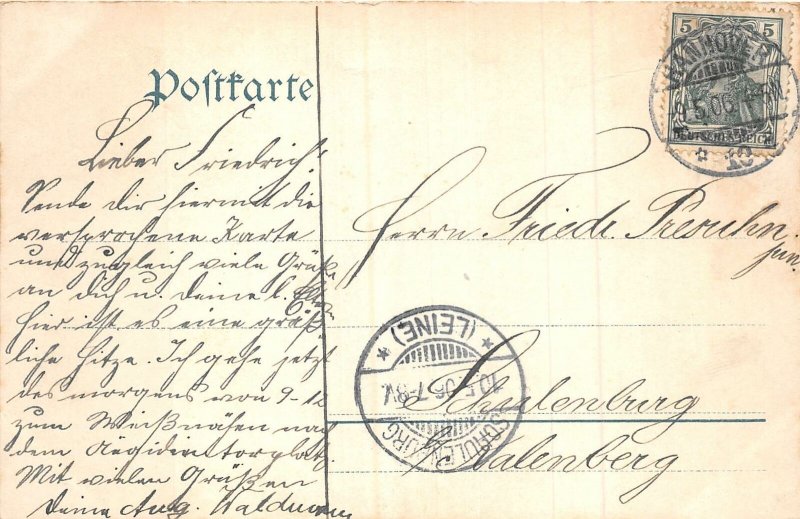 Postkarte
Lieber Friedrich!
Sende dir hiermit die
versprochene Karte
und zugleich viele Grüße
an dich u. deine l. Eltern
hier ist es eine gräß-
liche Hitze. Ich gehe jetzt
des morgens von 9-12
zum Weißnähen nach
dem Aegidientorplatz.
Mit vielen Grüßen
deine Aug. Waldmann
5 5
DEUTSCHES REICH
HANNOVER
9.5.06
* 10
Herrn Friedr. Presuhn
jun.
SCHULENBURG
10.5.06.7-8V.
* (LEINE) *
Schulenburg
Calenberg